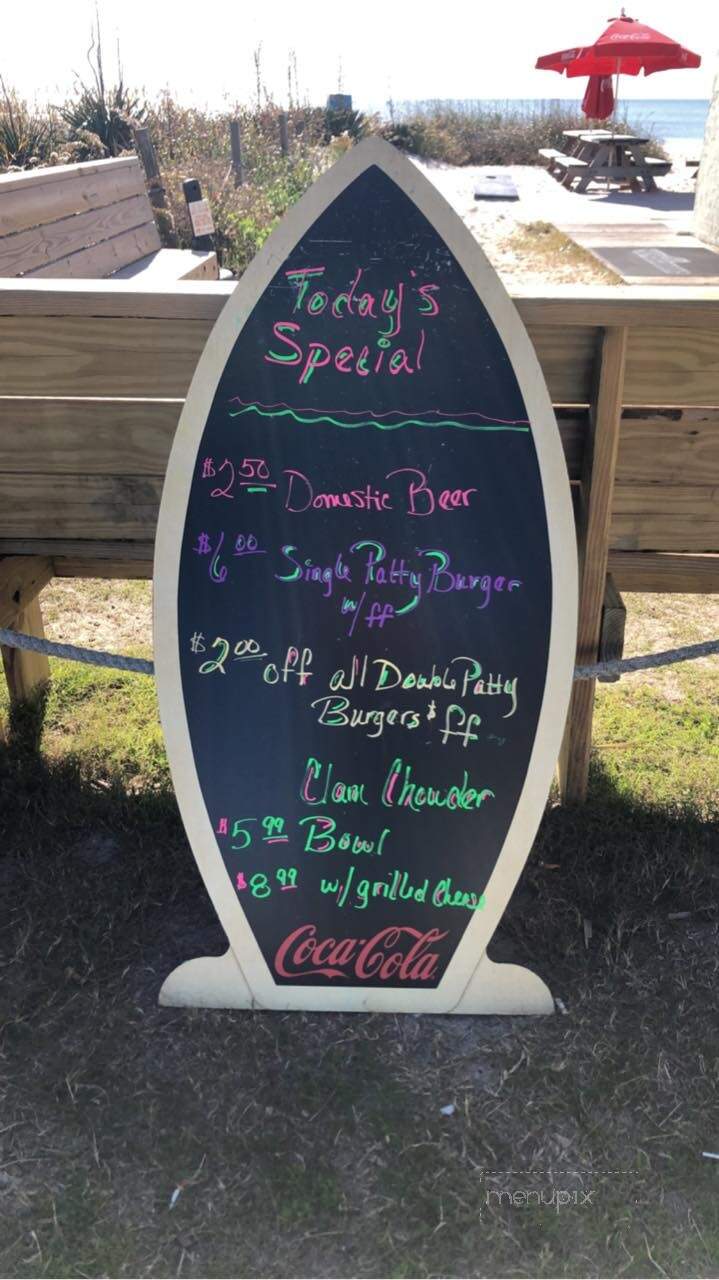 Today's
Special
$2.50 Domestic Beer
$6.00 Single Patty Burger
w/ff
$2.00 off all Double Patty
Burgers $ ff
Clam Chowder
$5.99 Bowl
$8.99 w/grilled Cheese
Coca-Cola
menupix